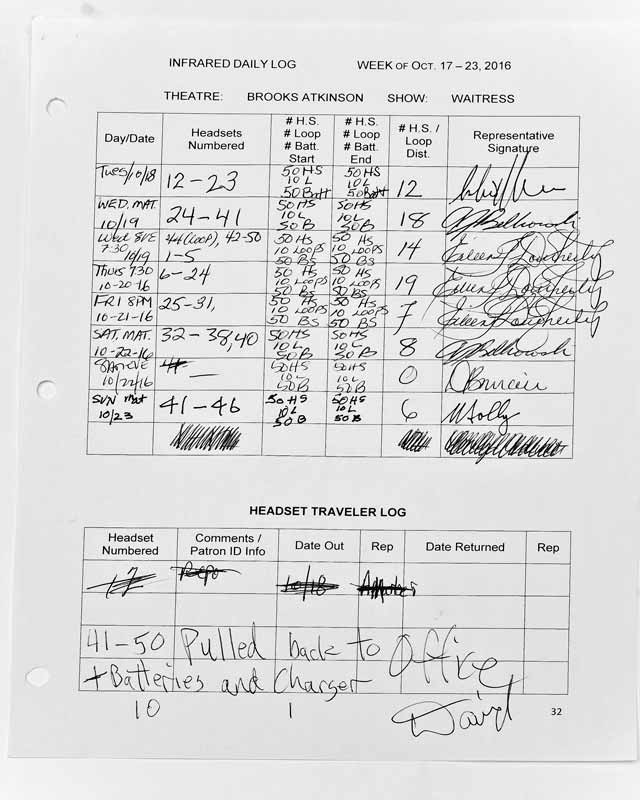 INFRARED DAILY LOG WEEK OF OCT. 17 – 23, 2016
THEATRE: BROOKS ATKINSON SHOW: WAITRESS
Day/Date Headsets Numbered # H.S. # Loop # Batt. Start # H.S. # Loop # Batt. End # H.S. / Loop Dist. Representative Signature
Tues/10/18 12-23 50HS 10L 50Batt 50HS 10L 50Batt 12
WED. MAT. 10/19 24-41 50HS 10L 50B 50HS 10L 50B 18
Wed EVE 7:30 10/19 (Loop), 42-50 1-5 50 HS 10 LOOPS 50 BS 50 HS 10 Loops 50 BS 14 Eileen F Dougherty
THURS 730 10-20-16 6-24 50 HS 10 Loops 50 BS 50 HS 10 Loops 50 BS 19 Eileen F Dougherty
FRI 8PM 10-21-16 25-31, 50 HS 10 LOOPS 50 BS 50 HS 10 LOOPS 50 BS 7 Eileen F Dougherty
SAT. MAT. 10-22-16 32-38,40 50HS 10L 50B 50HS 10L 50B 8
10/22/16 — 50HS 10L 50B 50HS 10L 50B 0
SUN Mat 10/23 41-46 50HS 10L 50B 50HS 10L 50B 6
HEADSET TRAVELER LOG
Headset Numbered Comments / Patron ID Info Date Out Rep Date Returned Rep
41-50 Pulled back to Office
+Batteries and Charger
10 1 David
32